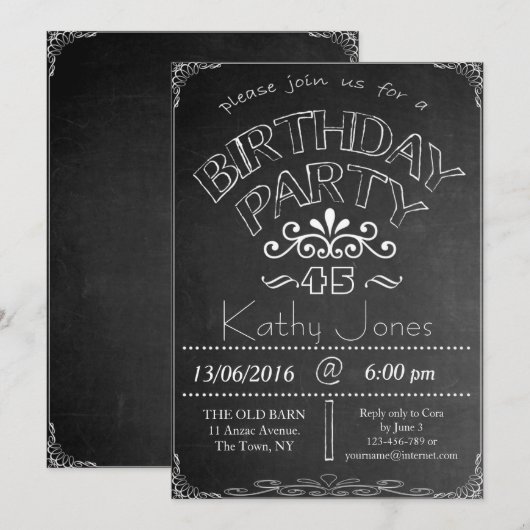 please join us for a
BIRTHDAY
PARTY
45
Kathy Jones
13/06/2016 @ 6:00 pm
THE OLD BARN
11 Anzac Avenue.
The Town, NY
Reply only to Cora
by June 3
123-456-789 or
yourname@internet.com